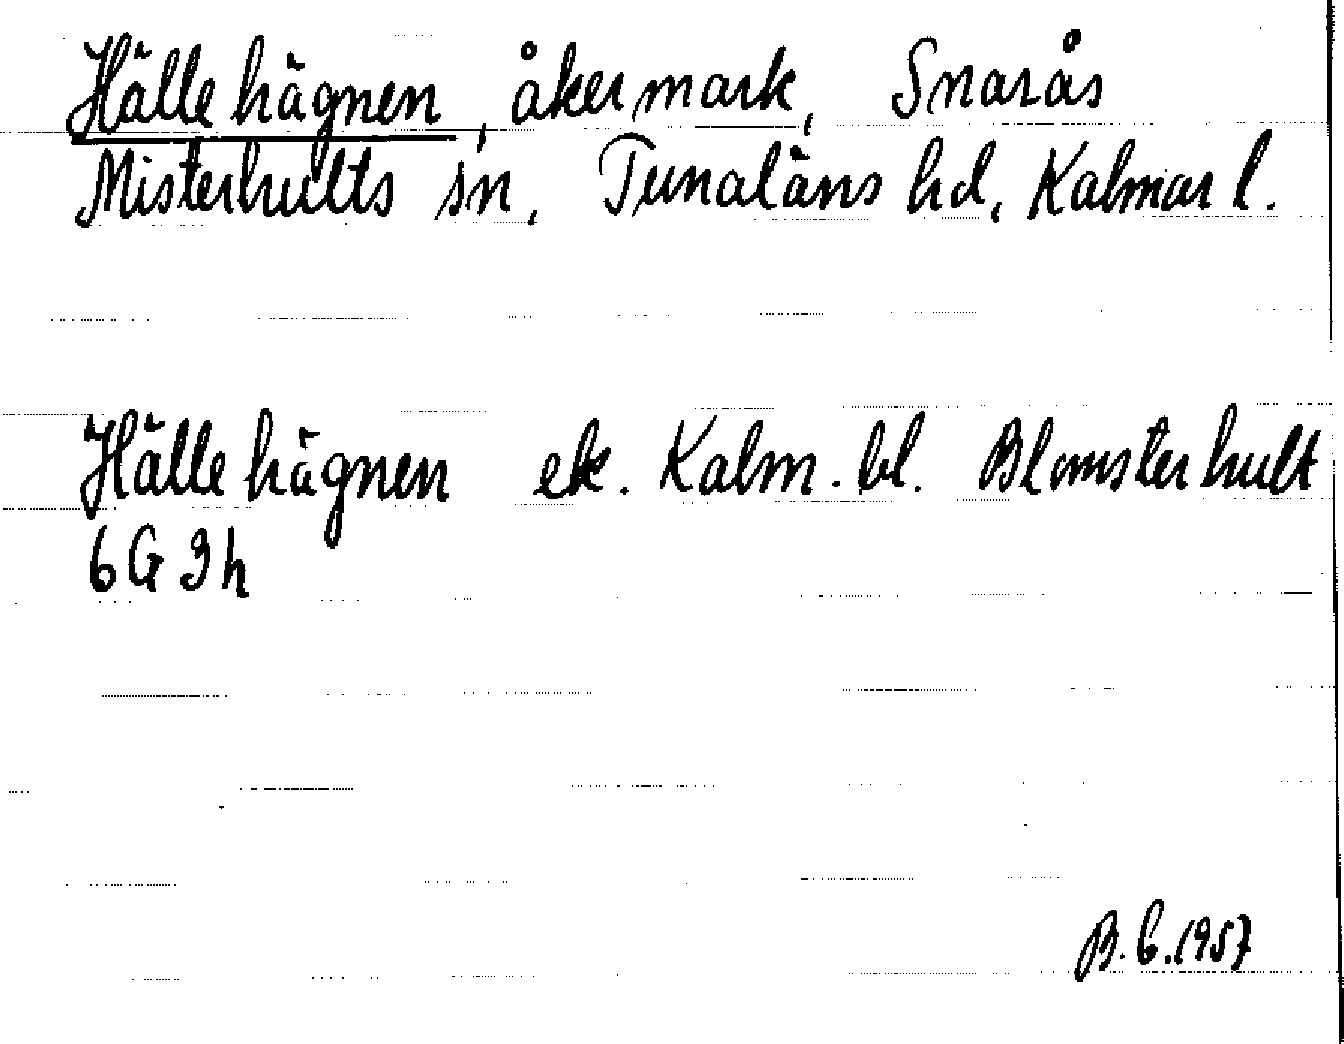 Hällehägnen, åkermark, Snarås
Misterhults sn, Tunaläns hd, Kalmar l.
Hällehägnen ek. Kalm. bl. Blomsterhult
6G 3h
B.E. 1957